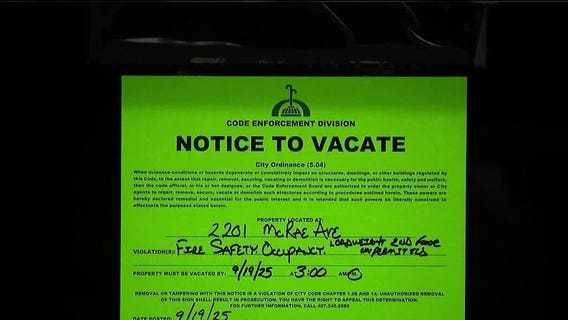 CODE ENFORCEMENT DIVISION
NOTICE TO VACATE
City Ordinance (5.04)
When nuisance conditions or hazards degenerate or cumulatively impact on structures, dwellings, or other buildings regulated by
this Code, to the extent that repair, removal, securing, vacating or demolition is necessary for the public health, safety and welfare,
then the code official, or his or her designee, or the Code Enforcement Board are authorized to order the property owner or City
agents to repair, remove, secure, vacate or demolish such structures according to procedures outlined herein. These powers are
hereby declared remedial and essential for the public interest and it is intended that such powers be liberally construed to
effectuate the purposes stated herein.
PROPERTY LOCATED AT:
2201 McRae Ave
VIOLATION(S): Fire Safety, Occupancy, Load/weight 2nd Floor
unpermitted
PROPERTY MUST BE VACATED BY: 9/19/25 AT 3:00 AM/PM
REMOVAL OR TAMPERING WITH THIS NOTICE IS A VIOLATION OF CITY CODE CHAPTER 1.08 AND 14. UNAUTHORIZED REMOVAL
OF THIS SIGN SHALL RESULT IN PROSECUTION. YOU HAVE THE RIGHT TO APPEAL THIS DETERMINATION.
FOR FURTHER INFORMATION, CALL 407.246.2686
DATE POSTED: 9/19/25